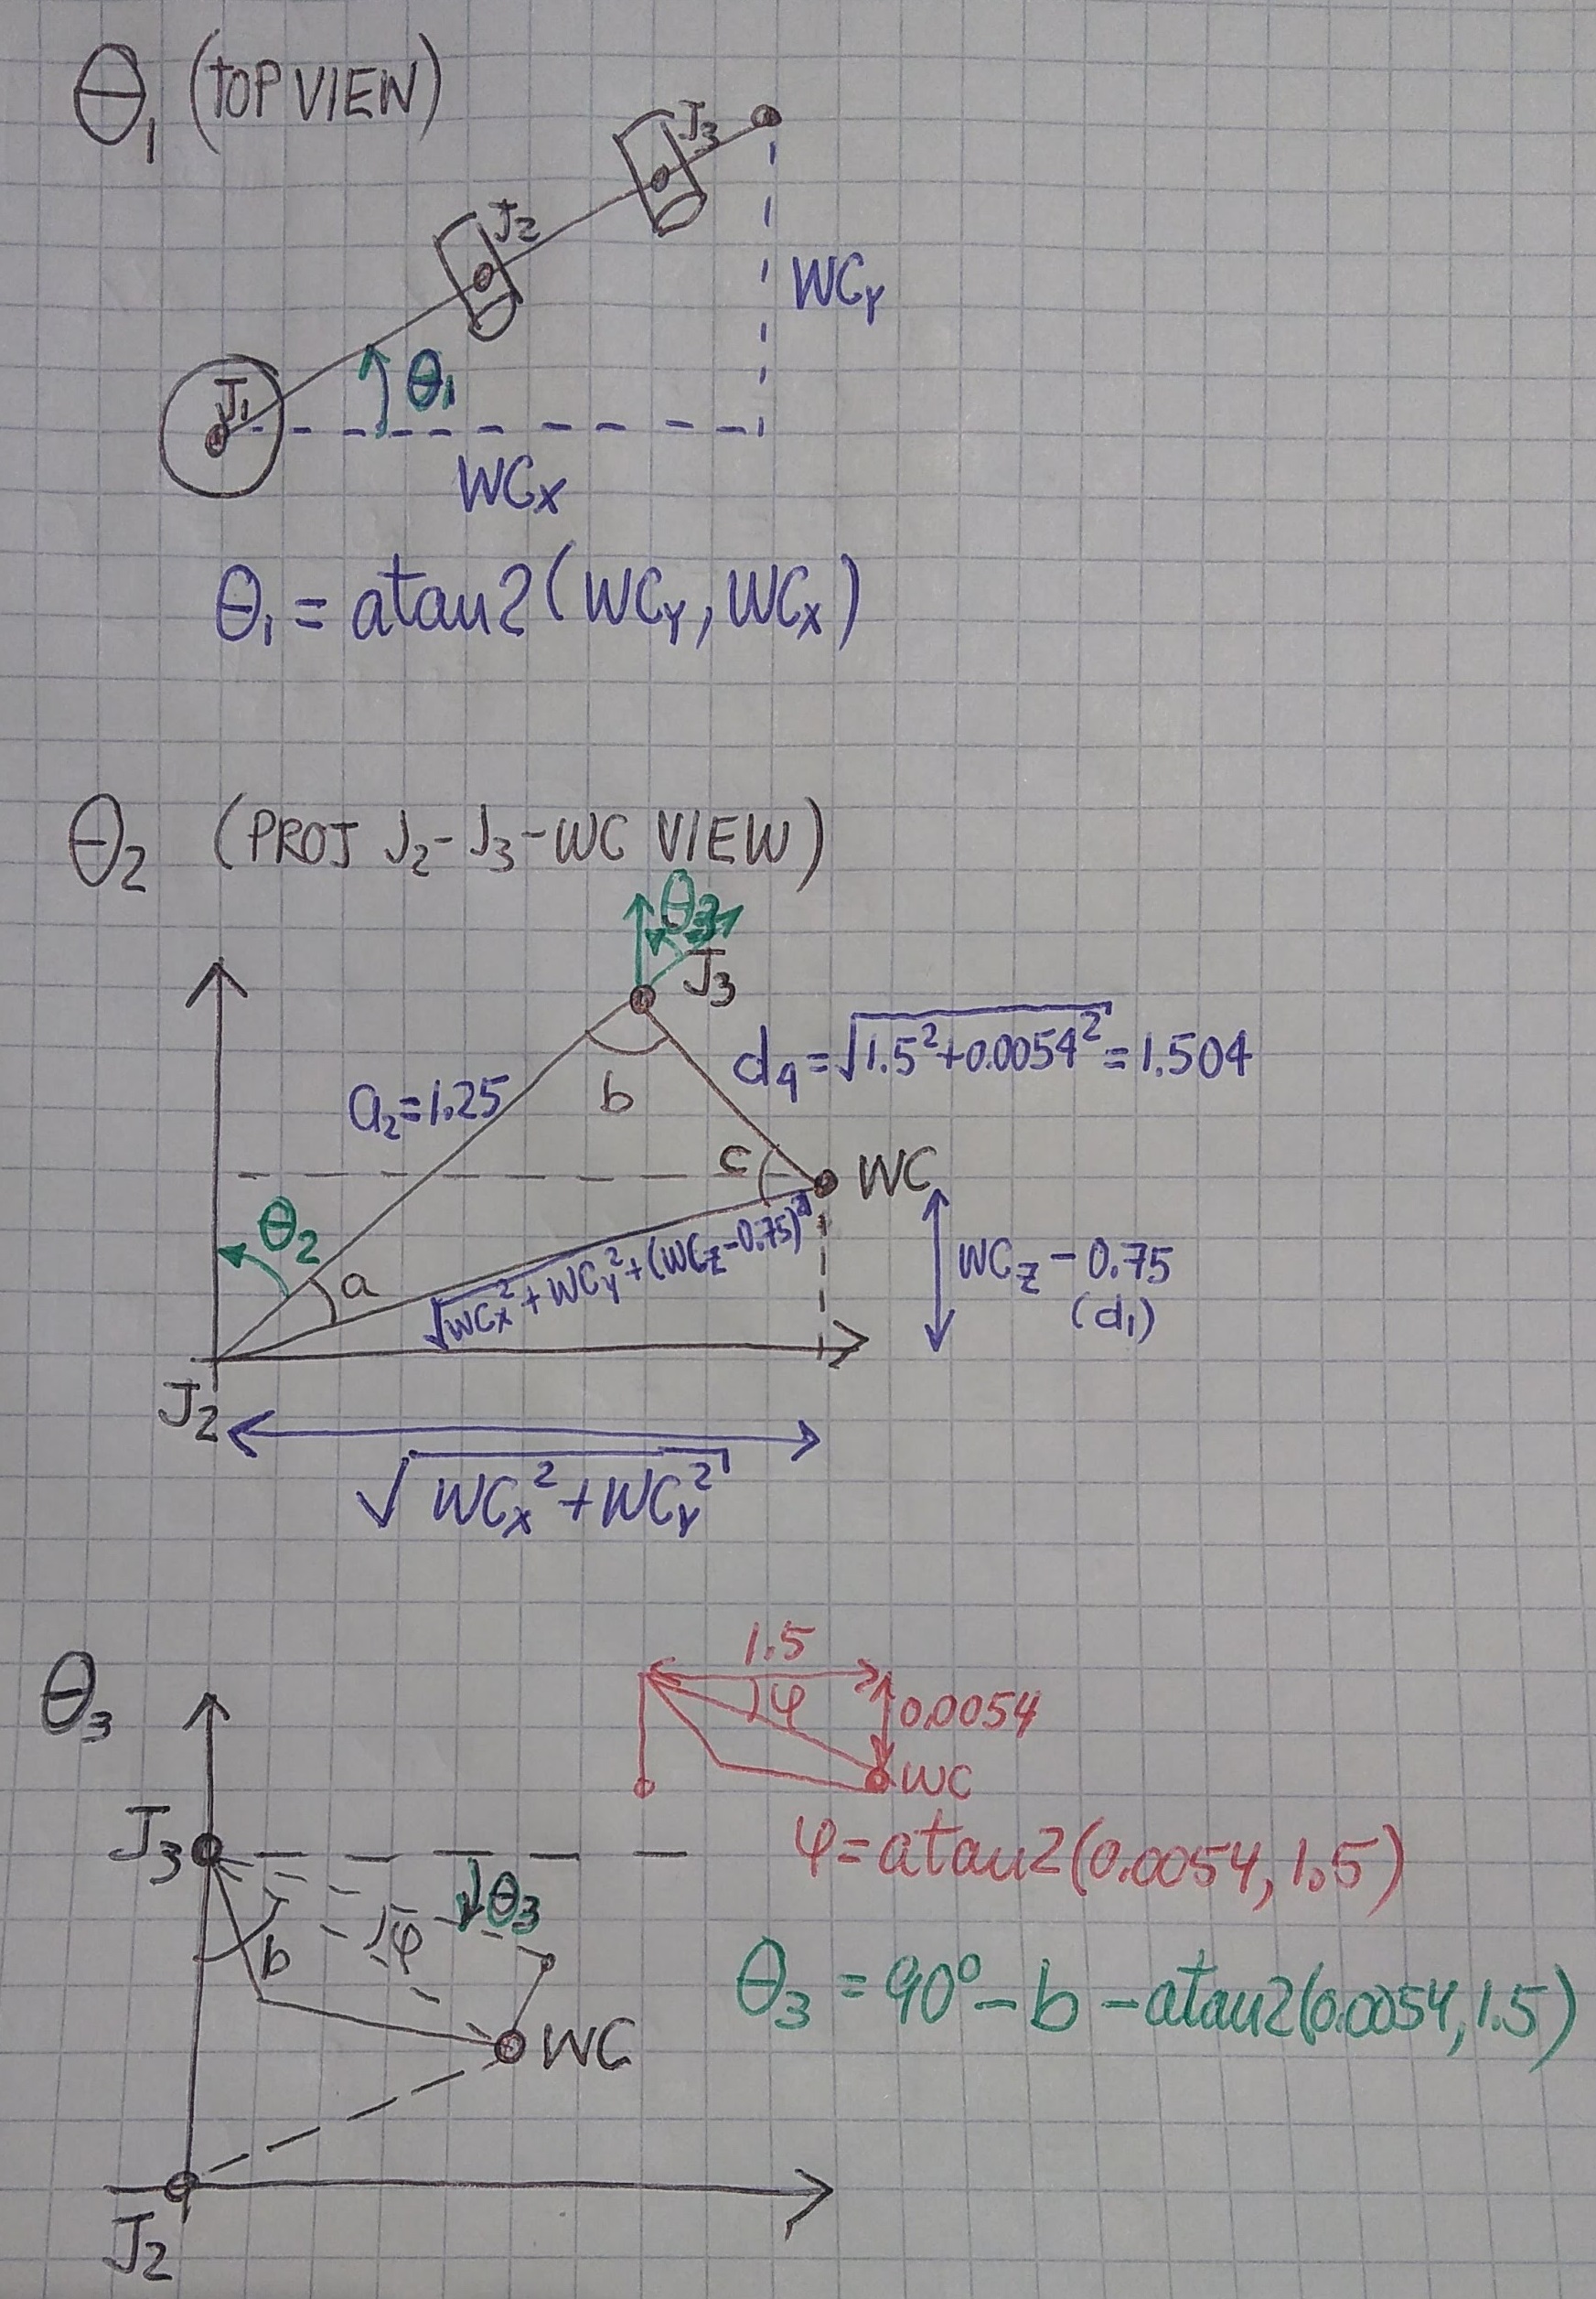 θ₁ (TOP VIEW)
J₃
J₂
WCY
θ₁
J₁
WCX
θ₁ = atan2(WCY, WCX)
θ₂ (PROJ J₂-J₃-WC VIEW)
θ₃
J₃
d₄=√1.5²+0.0054²=1.504
a₂=1.25
b
c
WC
θ₂
a
√WCX²+WCY²+(WCZ-0.75)²
WCZ-0.75
(d₁)
J₂
√WCX²+WCY²
θ₃
1.5
φ
0.0054
WC
J₃
φ=atan2(0.0054, 1.5)
θ₃
φ
b
θ₃ = 90°-b-atan2(0.0054, 1.5)
WC
J₂